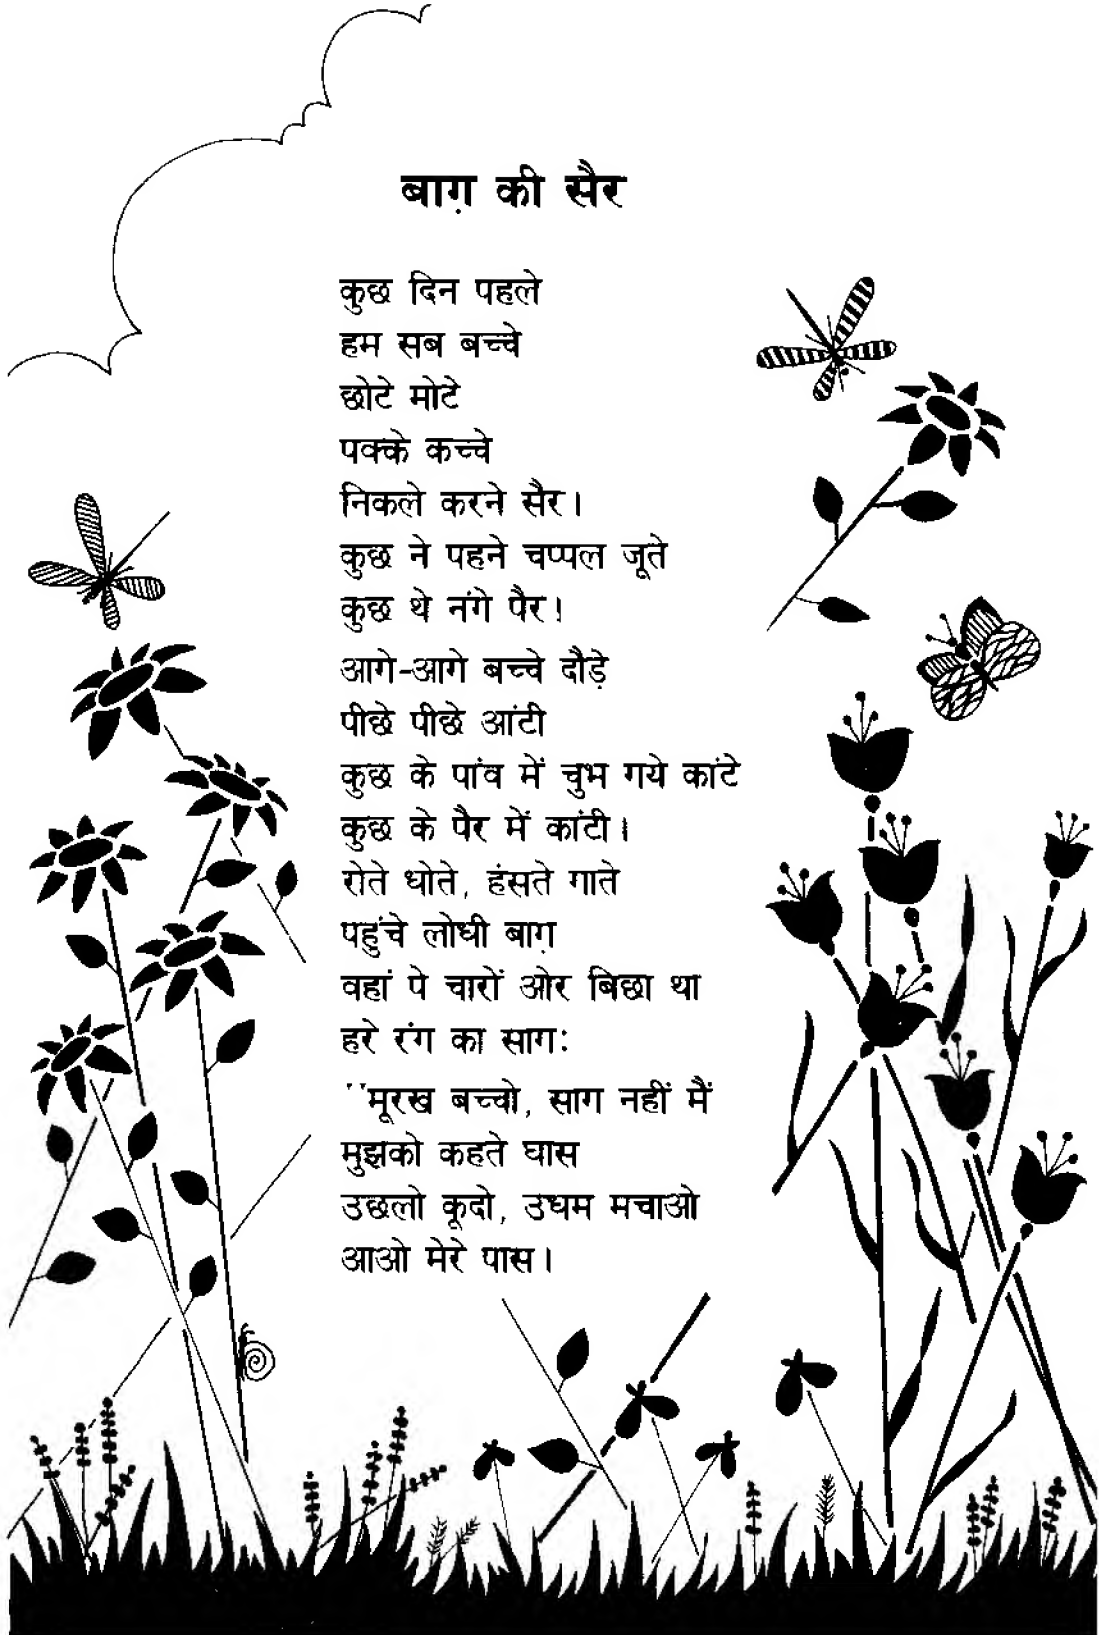 बाग़ की सैर
कुछ दिन पहले
हम सब बच्चे
छोटे मोटे
पक्के कच्चे
निकले करने सैर।
कुछ ने पहने चप्पल जूते
कुछ थे नंगे पैर।
आगे-आगे बच्चे दौड़े
पीछे पीछे आंटी
कुछ के पांव में चुभ गये कांटे
कुछ के पैर में कांटी।
रोते धोते, हंसते गाते
पहुंचे लोधी बाग़
वहां पे चारों ओर बिछा था
हरे रंग का साग:
"मूरख बच्चो, साग नहीं मैं
मुझको कहते घास
उछलो कूदो, उधम मचाओ
आओ मेरे पास।